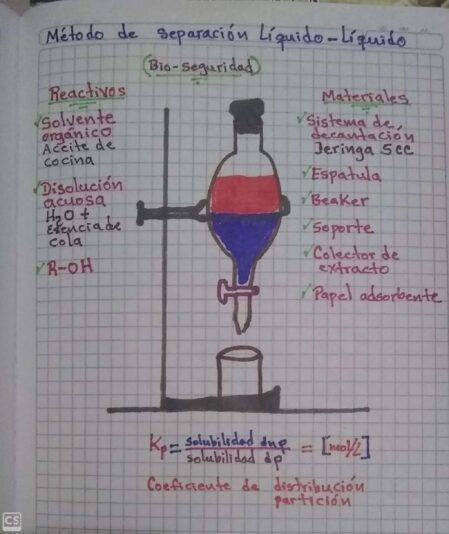 Método de separación Líquido-Líquido
(Bio-seguridad)
Reactivos
✓Solvente
orgánico
Aceite de
cocina
✓Disolución
acuosa
H₂O +
Esencia de
cola
✓R-OH
Materiales
✓Sistema de
decantación
Jeringa 5cc
✓Espatula
✓Beaker
✓Soporte
✓Colector de
extracto
✓Papel adsorbente
Kp = solubilidad dnp / solubilidad dp = [mol/L]
Coeficiente de distribución
partición
CS